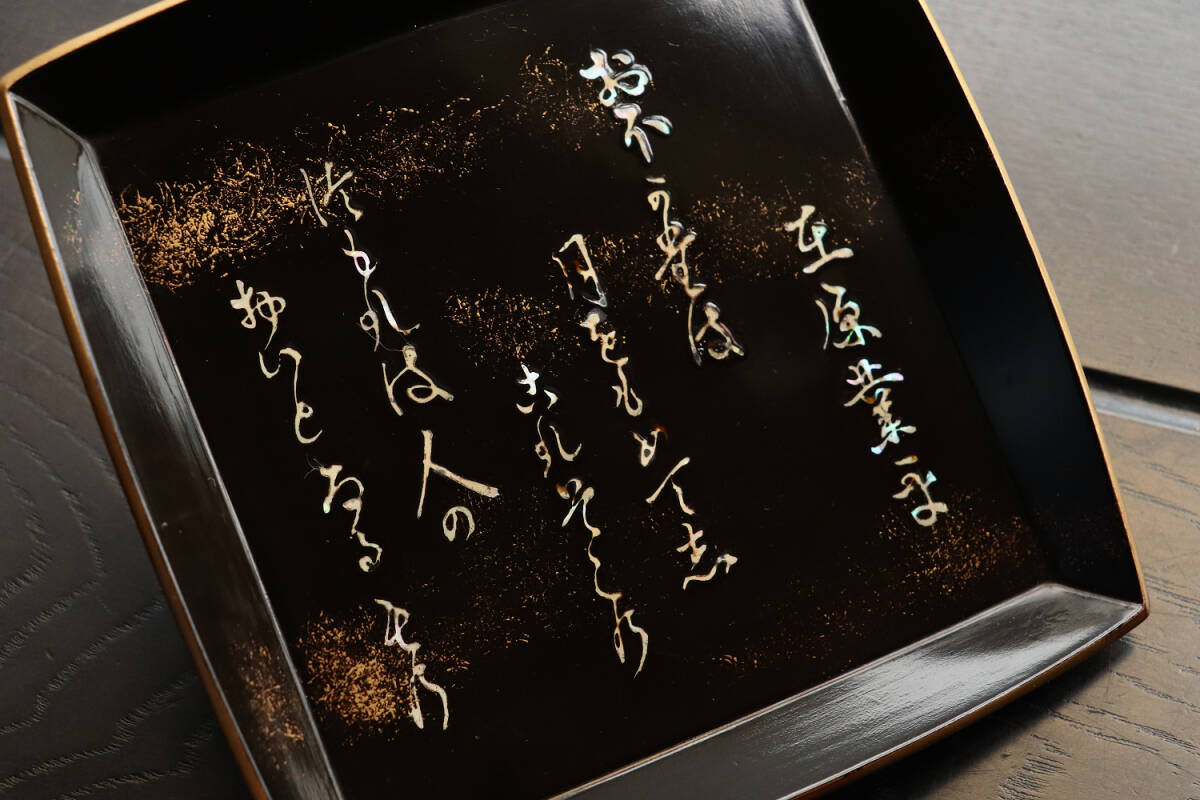 在原業平
おほかたは
月をもめてし
これそこの
つもれは人の
おいとなるもの